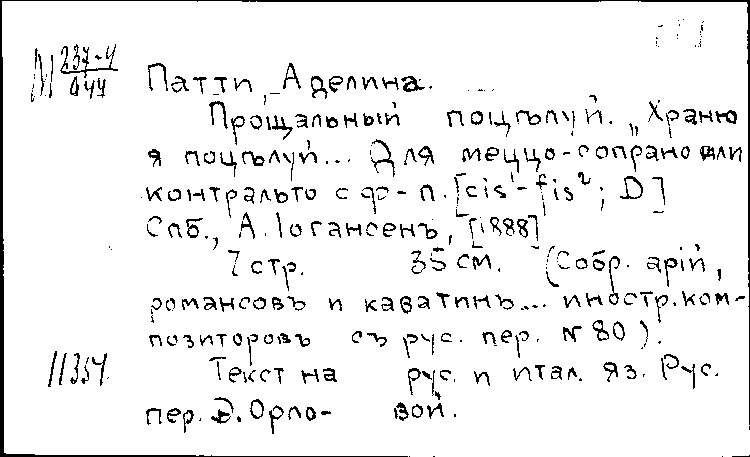 М 237-4/944
Патти, Аделина.
Прощальный поцѣлуй. „Храню
я поцѣлуй... Для меццо-сопрано или
контральто с ф-п. [cis¹-fis²; D]
Спб., А. Іогансенъ, [1888]
7 стр. 35 см. (Собр. арій,
романсовъ и каватинъ... иностр. ком-
позиторовъ съ рус. пер. № 80).
11354 Текст на рус. и итал. яз. Рус.
пер. Э. Орло- вой.